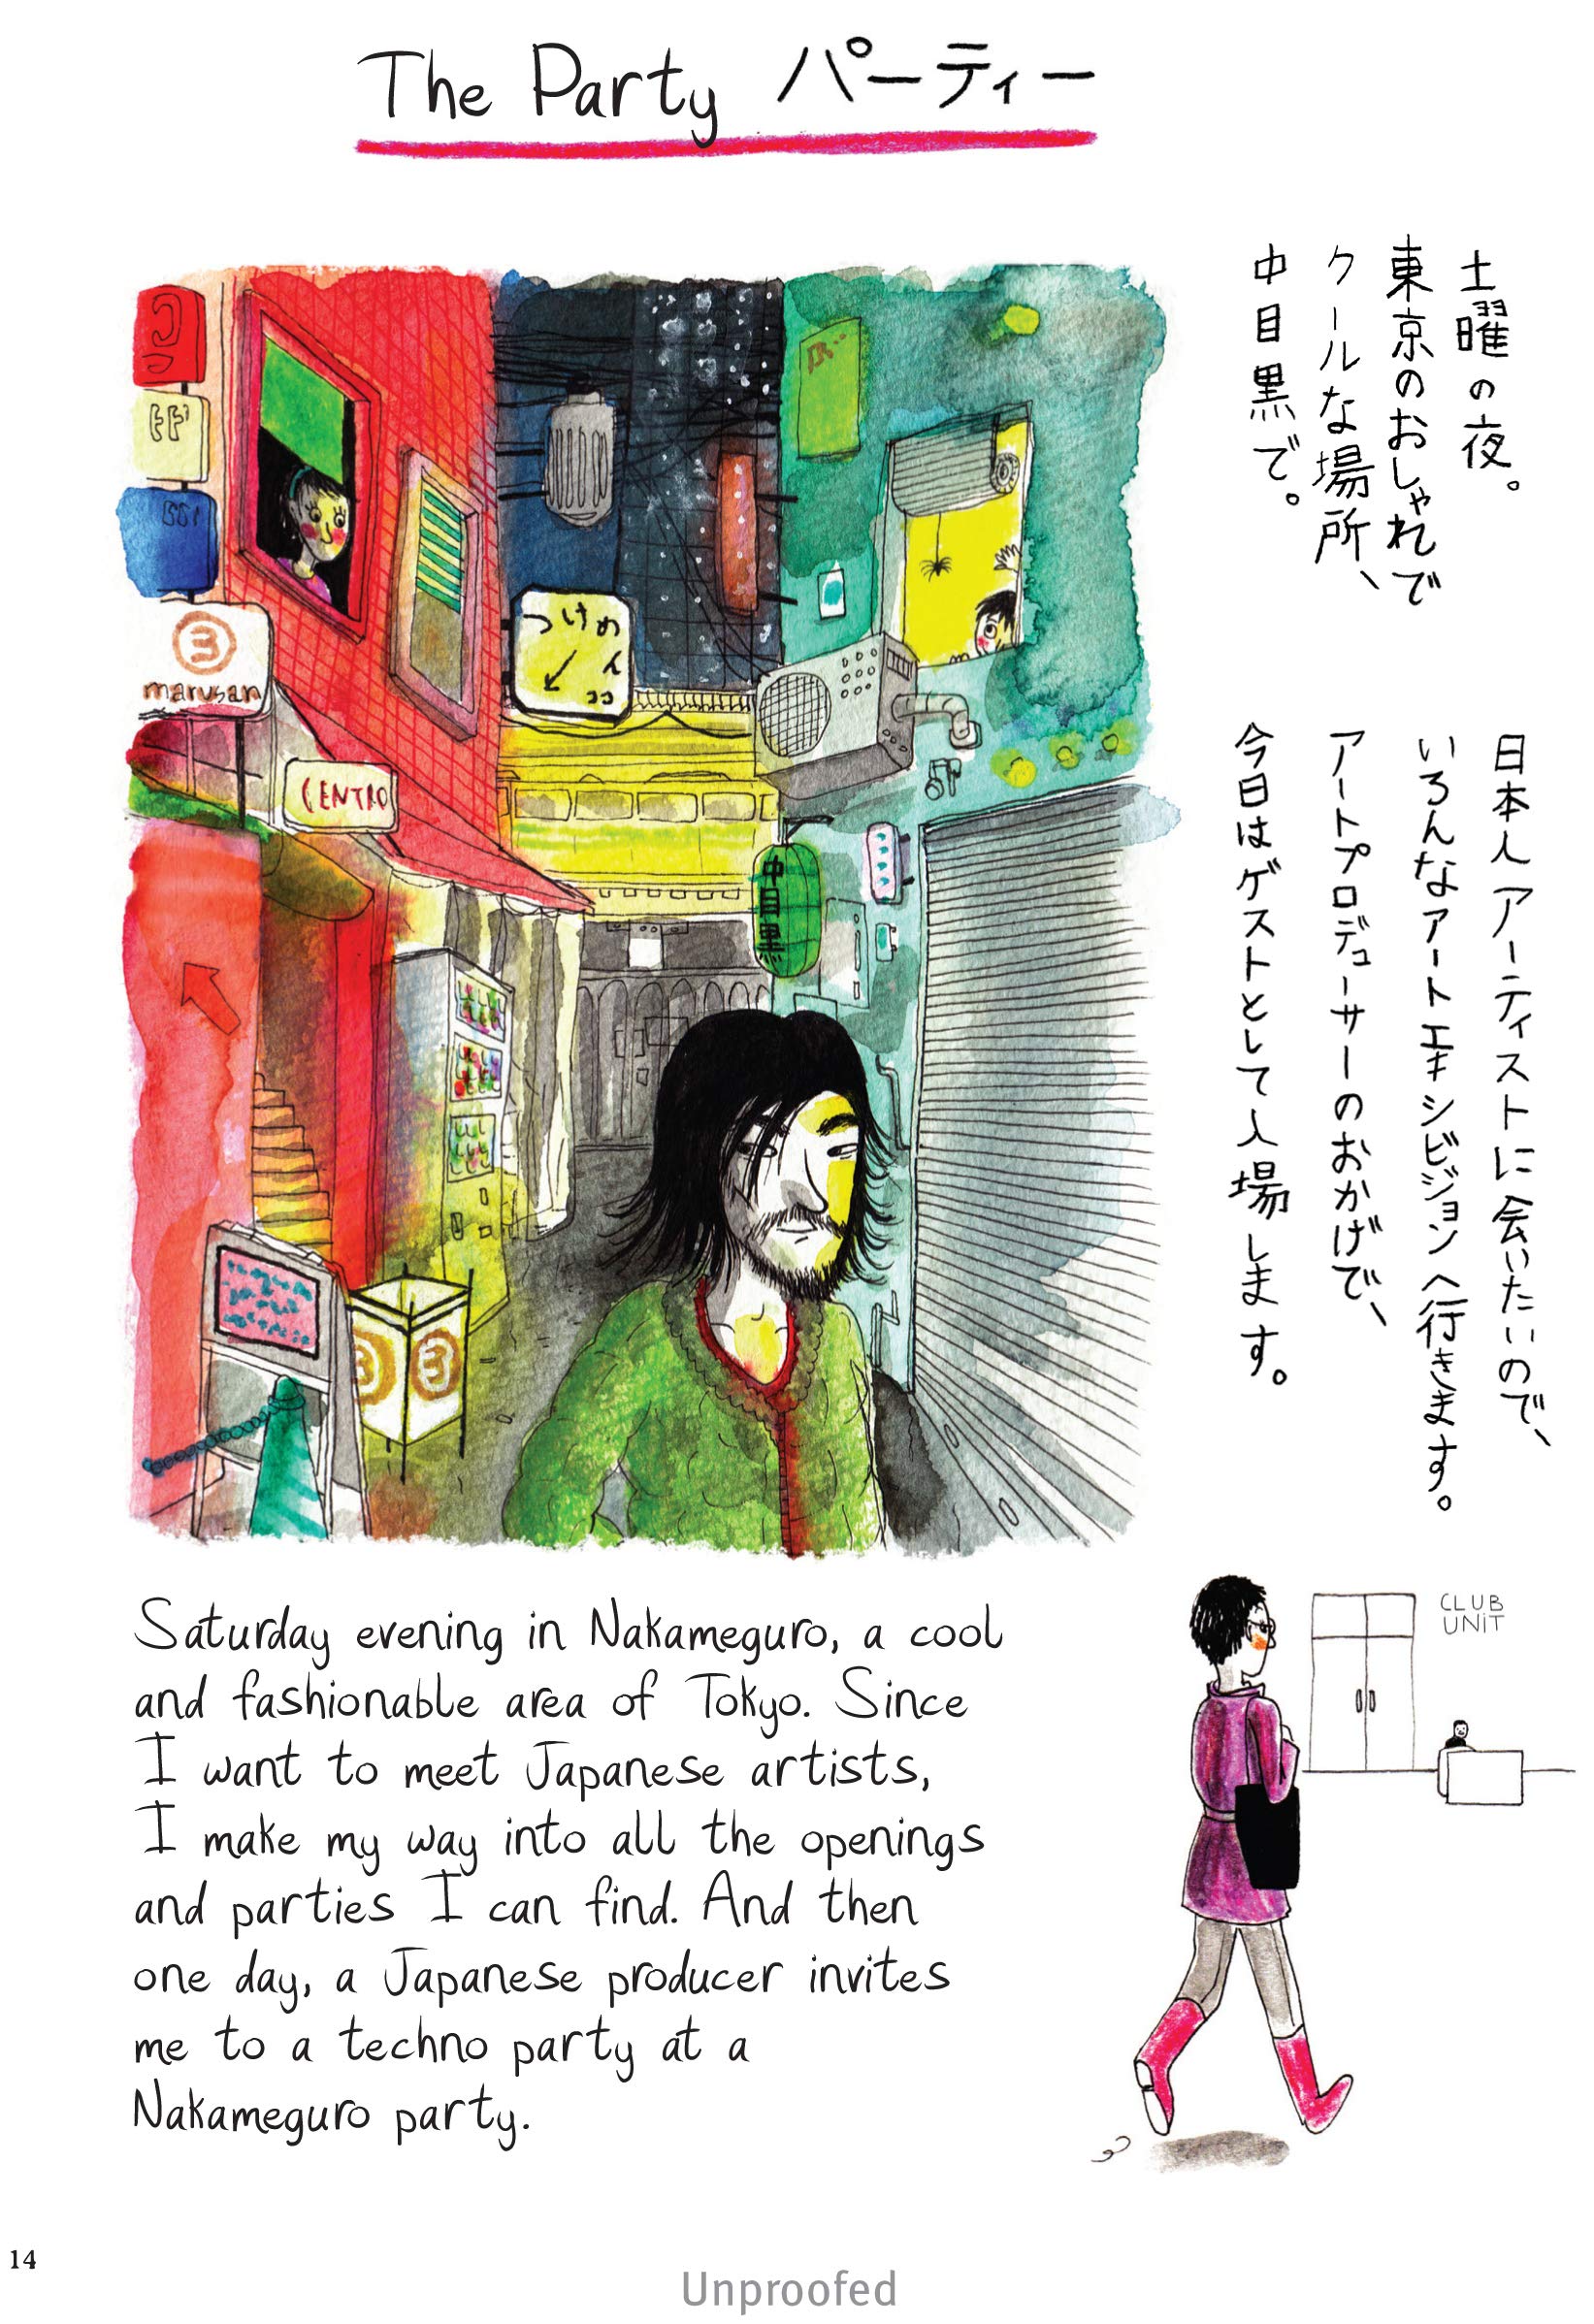 The Party パーティー
土曜の夜。
東京のおしゃれで
クールな場所、
中目黒で。
日本人アーティストに会いたいので、
いろんなアートエキシビジョンへ行きます。
アートプロデューサーのおかげで、
今日はゲストとして入場します。
つけめん
ココ
3
marusan
CENTRO
中目黒
3
3
CLUB
UNIT
Saturday evening in Nakameguro, a cool
and fashionable area of Tokyo. Since
I want to meet Japanese artists,
I make my way into all the openings
and parties I can find. And then
one day, a Japanese producer invites
me to a techno party at a
Nakameguro party.
14
Unproofed